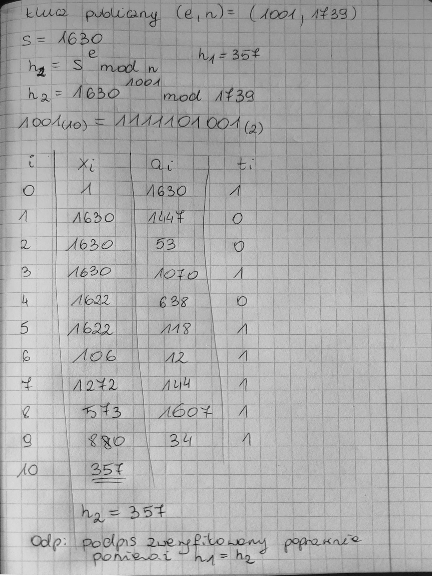 klucz publiczny (e, n) = (1001, 1739)
S = 1630
h₂ = Sᵉ mod n    h₁ = 357
h₂ = 1630¹⁰⁰¹ mod 1739
1001(10) = 1111101001(2)
i xi ai ti
0 1 1630 1
1 1630 1447 0
2 1630 53 0
3 1630 1070 1
4 1622 638 0
5 1622 118 1
6 106 12 1
7 1272 144 1
8 573 1607 1
9 880 34 1
10 357
h₂ = 357
Odp: podpis zweryfikowany poprawnie
ponieważ h₁ = h₂